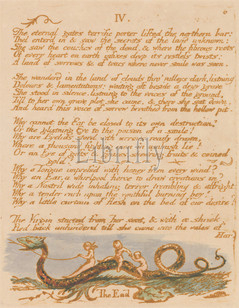 IV.
The eternal gates terrific porter lifted the northern bar:
Thel enter'd in & saw the secrets of the land unknown;
She saw the couches of the dead, & where the fibrous roots
Of every heart on earth infixes deep its restless twists:
A land of sorrows & of tears where never smile was seen.
She wanderd in the land of clouds thro' valleys dark, listning
Dolours & lamentations: waiting oft beside a dewy grave
She stood in silence, listning to the voices of the ground,
Till to her own grave plot she came, & there she sat down,
And heard this voice of sorrow breathed from the hollow pit.
Why cannot the Ear be closed to its own destruction?
Or the glistning Eye to the poison of a smile!
Why are Eyelids stord with arrows ready drawn,
Where a thousand fighting men in ambush lie?
Or an Eye of gifts & graces, show'ring fruits & coined
gold!
Why a Tongue impress'd with honey from every wind?
Why an Ear, a whirlpool fierce to draw creations in?
Why a Nostril wide inhaling terror trembling & affright
Why a tender curb upon the youthful burning boy!
Why a little curtain of flesh on the bed of our desire?
The Virgin started from her seat, & with a shriek
Fled back unhinderd till she came into the vales of
Har
The End